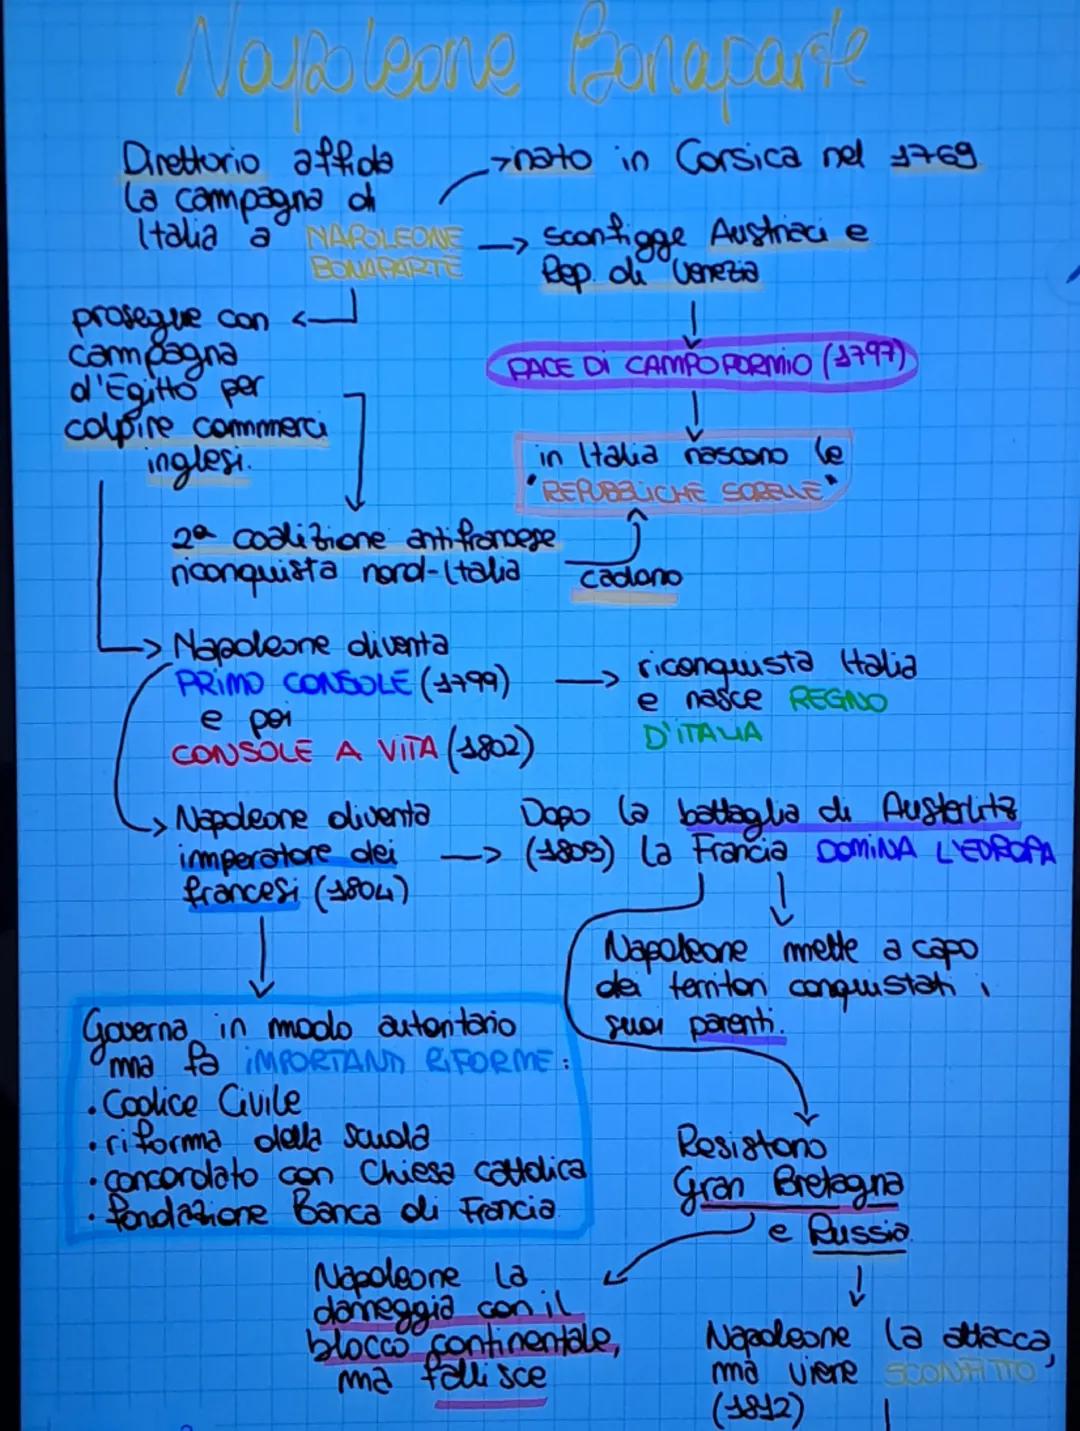 Napoleone Bonaparte
Direttorio affida
la campagna di
Italia a NAPOLEONE
BONAPARTE
nato in Corsica nel 1769
sconfigge Austriaci e
Rep. di Venezia
PACE Di CAMPOFORMIO (1797)
in Italia nascono le
"REPUBBLICHE SORELLE"
prosegue con
campagna
d'Egitto per
colpire commerci
inglesi.
2ª coalizione antifrancese
riconquista nord-Italia
cadono
Napoleone diventa
PRIMO CONSOLE (1799)
e poi
CONSOLE A VITA (1802)
riconquista Italia
e nasce REGNO
D'ITALIA
Napoleone diventa
imperatore dei
francesi (1804)
Dopo la battaglia di Austerlitz
(1805) la Francia DOMINA L'EUROPA
Napoleone mette a capo
dei territori conquistati i
suoi parenti.
Governa in modo autoritario
ma fa IMPORTANTI RIFORME:
• Codice Civile
• riforma della scuola
• concordato con Chiesa cattolica
• fondazione Banca di Francia
Resistono
Gran Bretagna
e Russia.
Napoleone la
danneggia con il
blocco continentale,
ma fallisce
Napoleone la attacca,
ma viene SCONFITTO
(1812)